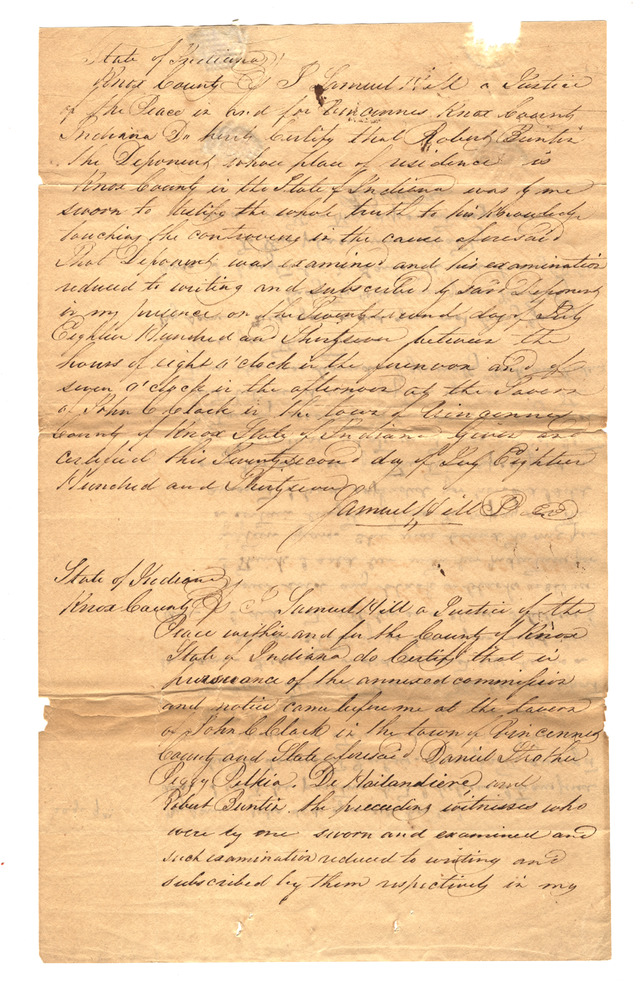 State of Indiana
Knox County Ss I Samuel Hill a Justice
of the Peace in and for Vincennes Knox County
Indiana Do herby Certify that Robert Buntin
the Deponent whose place of residence is
Knox County in the State of Indiana was by me
sworn to testify the whole truth to his Knowledge
touching the controversy in the cause aforesaid
That Deponent was examined and his examination
reduced to writing and subscribed by said Deponent
in my presence on the Twenty second day of July
Eighteen Hundred and Thirty seven between the
hours of eight o'clock in the forenoon and of
seven o'clock in the afternoon at the Tavern
of John C Clark in the town of Vincennes
County of Knox State of Indiana Given and
certified this Twenty second day of July Eighteen
Hundred and Thirty seven
Samuel Hill
State of Indiana
Knox County Ss I Samuel Hill a Justice of the
Peace within and for the County of Knox
State of Indiana do Certify that in
pursuance of the annexed commission
and notice came before me at the tavern
of John C Clark in the town of Vincennes
County and State aforesaid Daniel
Peggy De Hailandiere and
Robert Buntin the preceding witnesses who
were by me sworn and examined and
such examination reduced to writing and
subscribed by them respictively in my